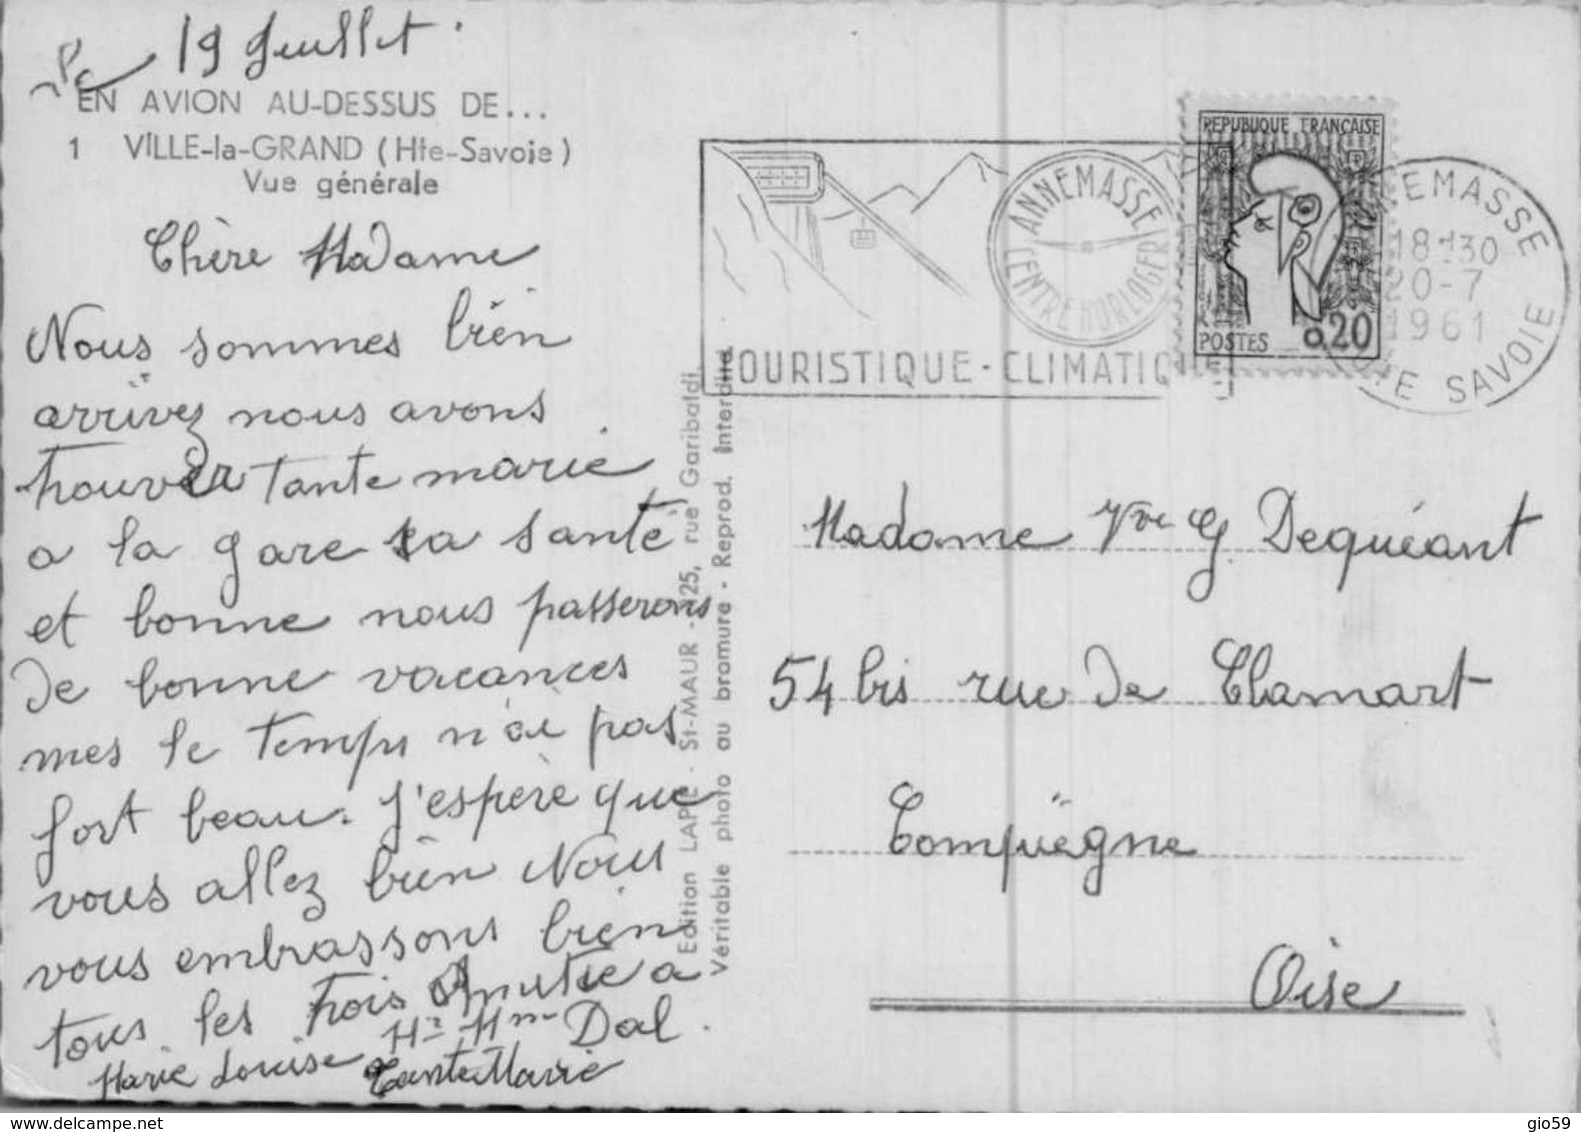 le 19 Juillet.
EN AVION AU-DESSUS DE...
1 VILLE-la-GRAND (Hte-Savoie)
Vue générale
Chère Madame
Nous sommes bien
arrivez nous avons
trouver tante marie
a la gare sa santé
et bonne nous passerons
de bonne vacances
mes le temps n'ai pas
fort beau. J'espère que
vous allez bien Nous
vous embrassons bien
tous les trois Amitié a
Mr Mme Dal.
Marie Louise
Tante Marie
Edition LAPIE - St-MAUR - 125, rue Garibaldi.
Véritable photo au bromure - Reprod. Interdite.
ANNEMASSE
CENTRE HORLOGER
TOURISTIQUE-CLIMATIQ
REPUBLIQUE FRANÇAISE
POSTES 0,20
EMASSE
18-30
20-7
1961
TE SAVOIE
Madame Vve G. Dequéant
54 bis rue de Clamart
Compiègne
Oise
www.delcampe.net
gio59